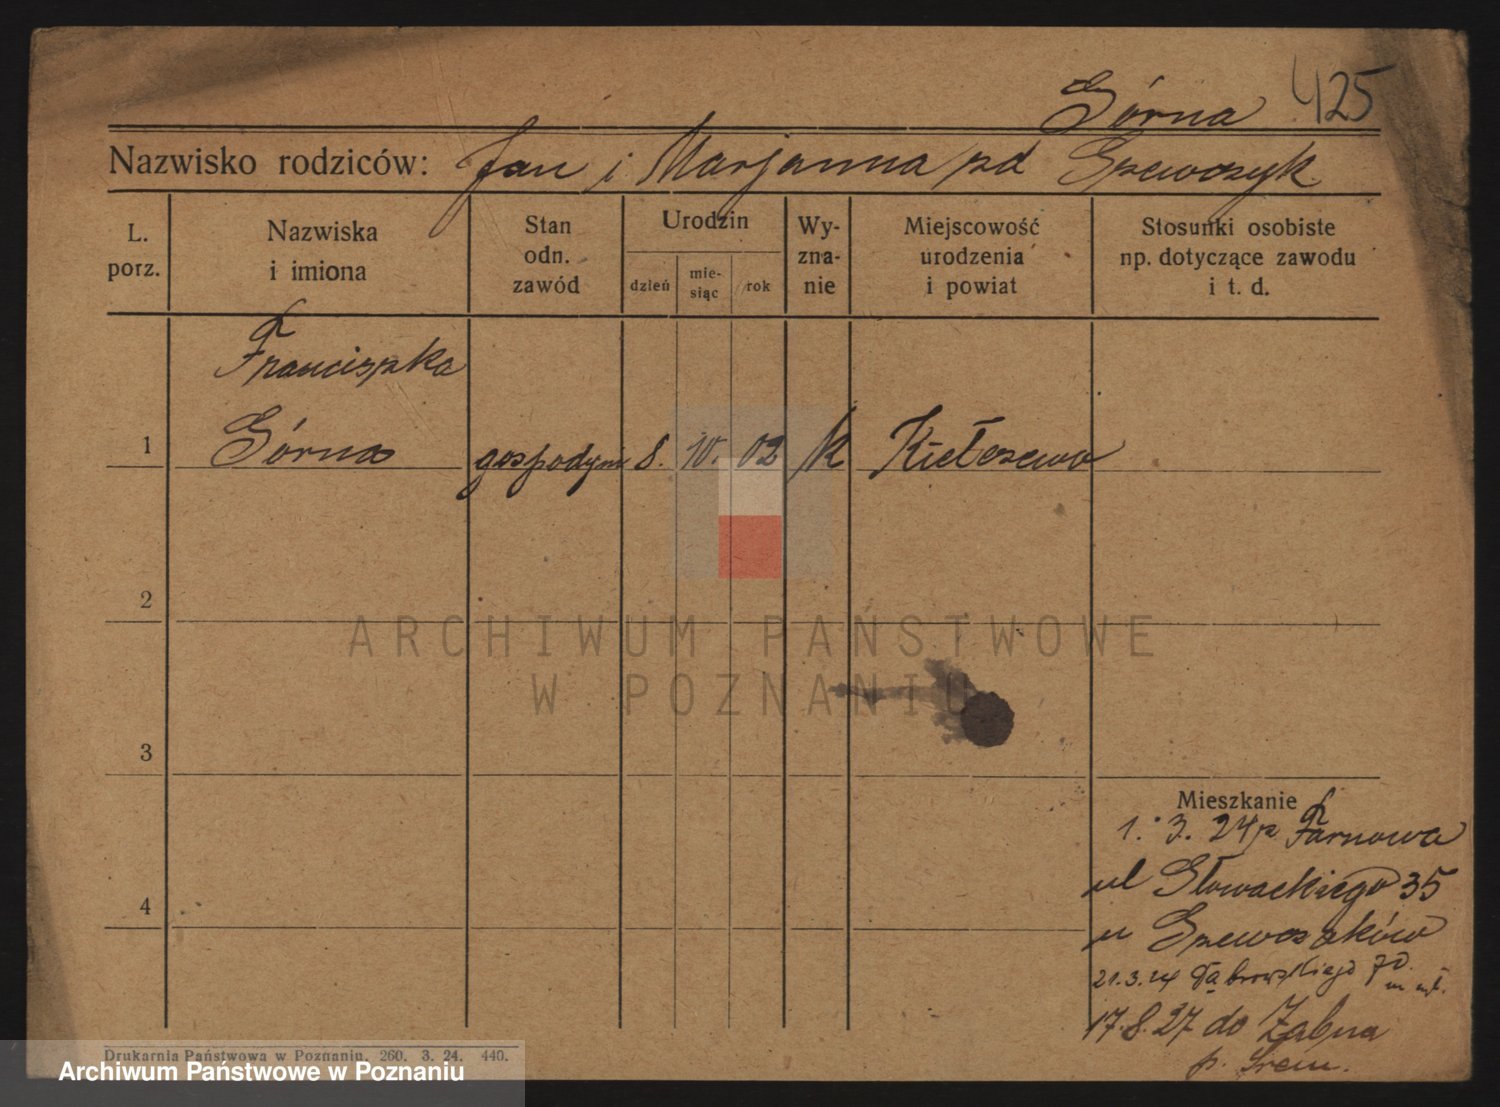 Górna 425
Nazwisko rodziców: Jan i Marjanna zd Szewczyk
L. porz.
Nazwiska i imiona
Stan odn. zawód
Urodzin
dzień
mie- siąc
rok
Wy- zna- nie
Miejscowość urodzenia i powiat
Stosunki osobiste np. dotyczące zawodu i t. d.
Franciszka
1 Górna gospodyni 8. 10. 02 k Kiełczewo
2
ARCHIWUM PAŃSTWOWE
W POZNANIU
3
Mieszkanie
1. 3. 24 z Tarnowa
ul Słowackiego 35
4
u Szewczaków
21.3.24 Dąbrowskiego
17.8.27 do Żabna
p. Śrem.
Drukarnia Państwowa w Poznaniu. 260. 3. 24. 440.
Archiwum Państwowe w Poznaniu